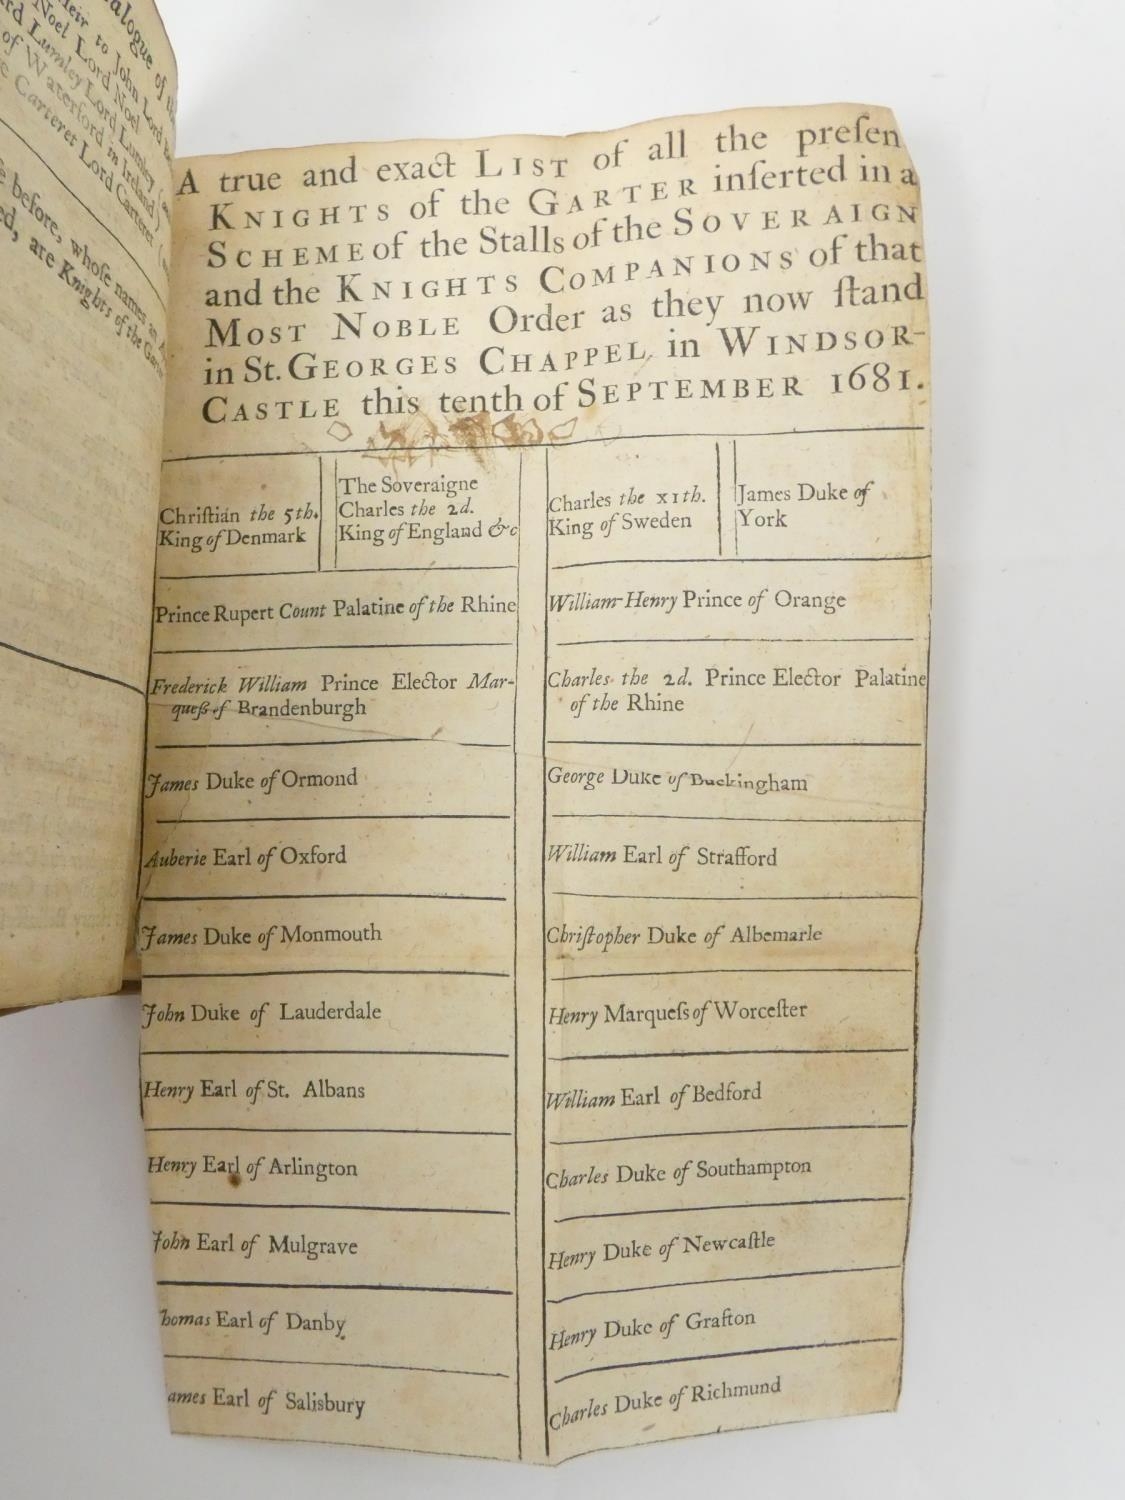 alogue of
Heir to John Lord
Noel Lord Noel
Lumley Lord Lumley
of Waterford in Ireland)
Carteret Lord Carteret
before, whoſe names an
ed, are Knights of the Garter
A true and exact LIST of all the preſen
KNIGHTS of the GARTER inſerted in a
SCHEME of the Stalls of the SOVERAIGN
and the KNIGHTS COMPANIONS of that
MOST NOBLE Order as they now ſtand
in St. GEORGES CHAPPEL in WINDSOR-
CASTLE this tenth of SEPTEMBER 1681.
Chriſtian the 5th.
King of Denmark
The Soveraigne
Charles the 2d.
King of England &c
Charles the XIth.
King of Sweden
James Duke of
York
Prince Rupert Count Palatine of the Rhine
William-Henry Prince of Orange
Frederick William Prince Elector Mar-
queſs of Brandenburgh
Charles the 2d. Prince Elector Palatine
of the Rhine
James Duke of Ormond
George Duke of Buckingham
Auberie Earl of Oxford
William Earl of Strafford
James Duke of Monmouth
Chriſtopher Duke of Albemarle
John Duke of Lauderdale
Henry Marqueſs of Worceſter
Henry Earl of St. Albans
William Earl of Bedford
Henry Earl of Arlington
Charles Duke of Southampton
John Earl of Mulgrave
Henry Duke of Newcaſtle
homas Earl of Danby
Henry Duke of Grafton
ames Earl of Salisbury
Charles Duke of Richmund